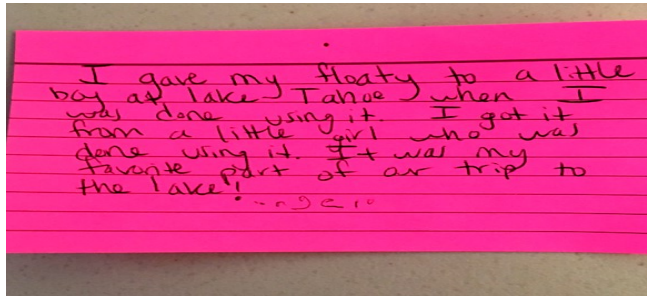 I gave my floaty to a little
boy at lake Tahoe when I
was done using it. I got it
from a little girl who was
done using it. It was my
favorite part of our trip to
the lake!